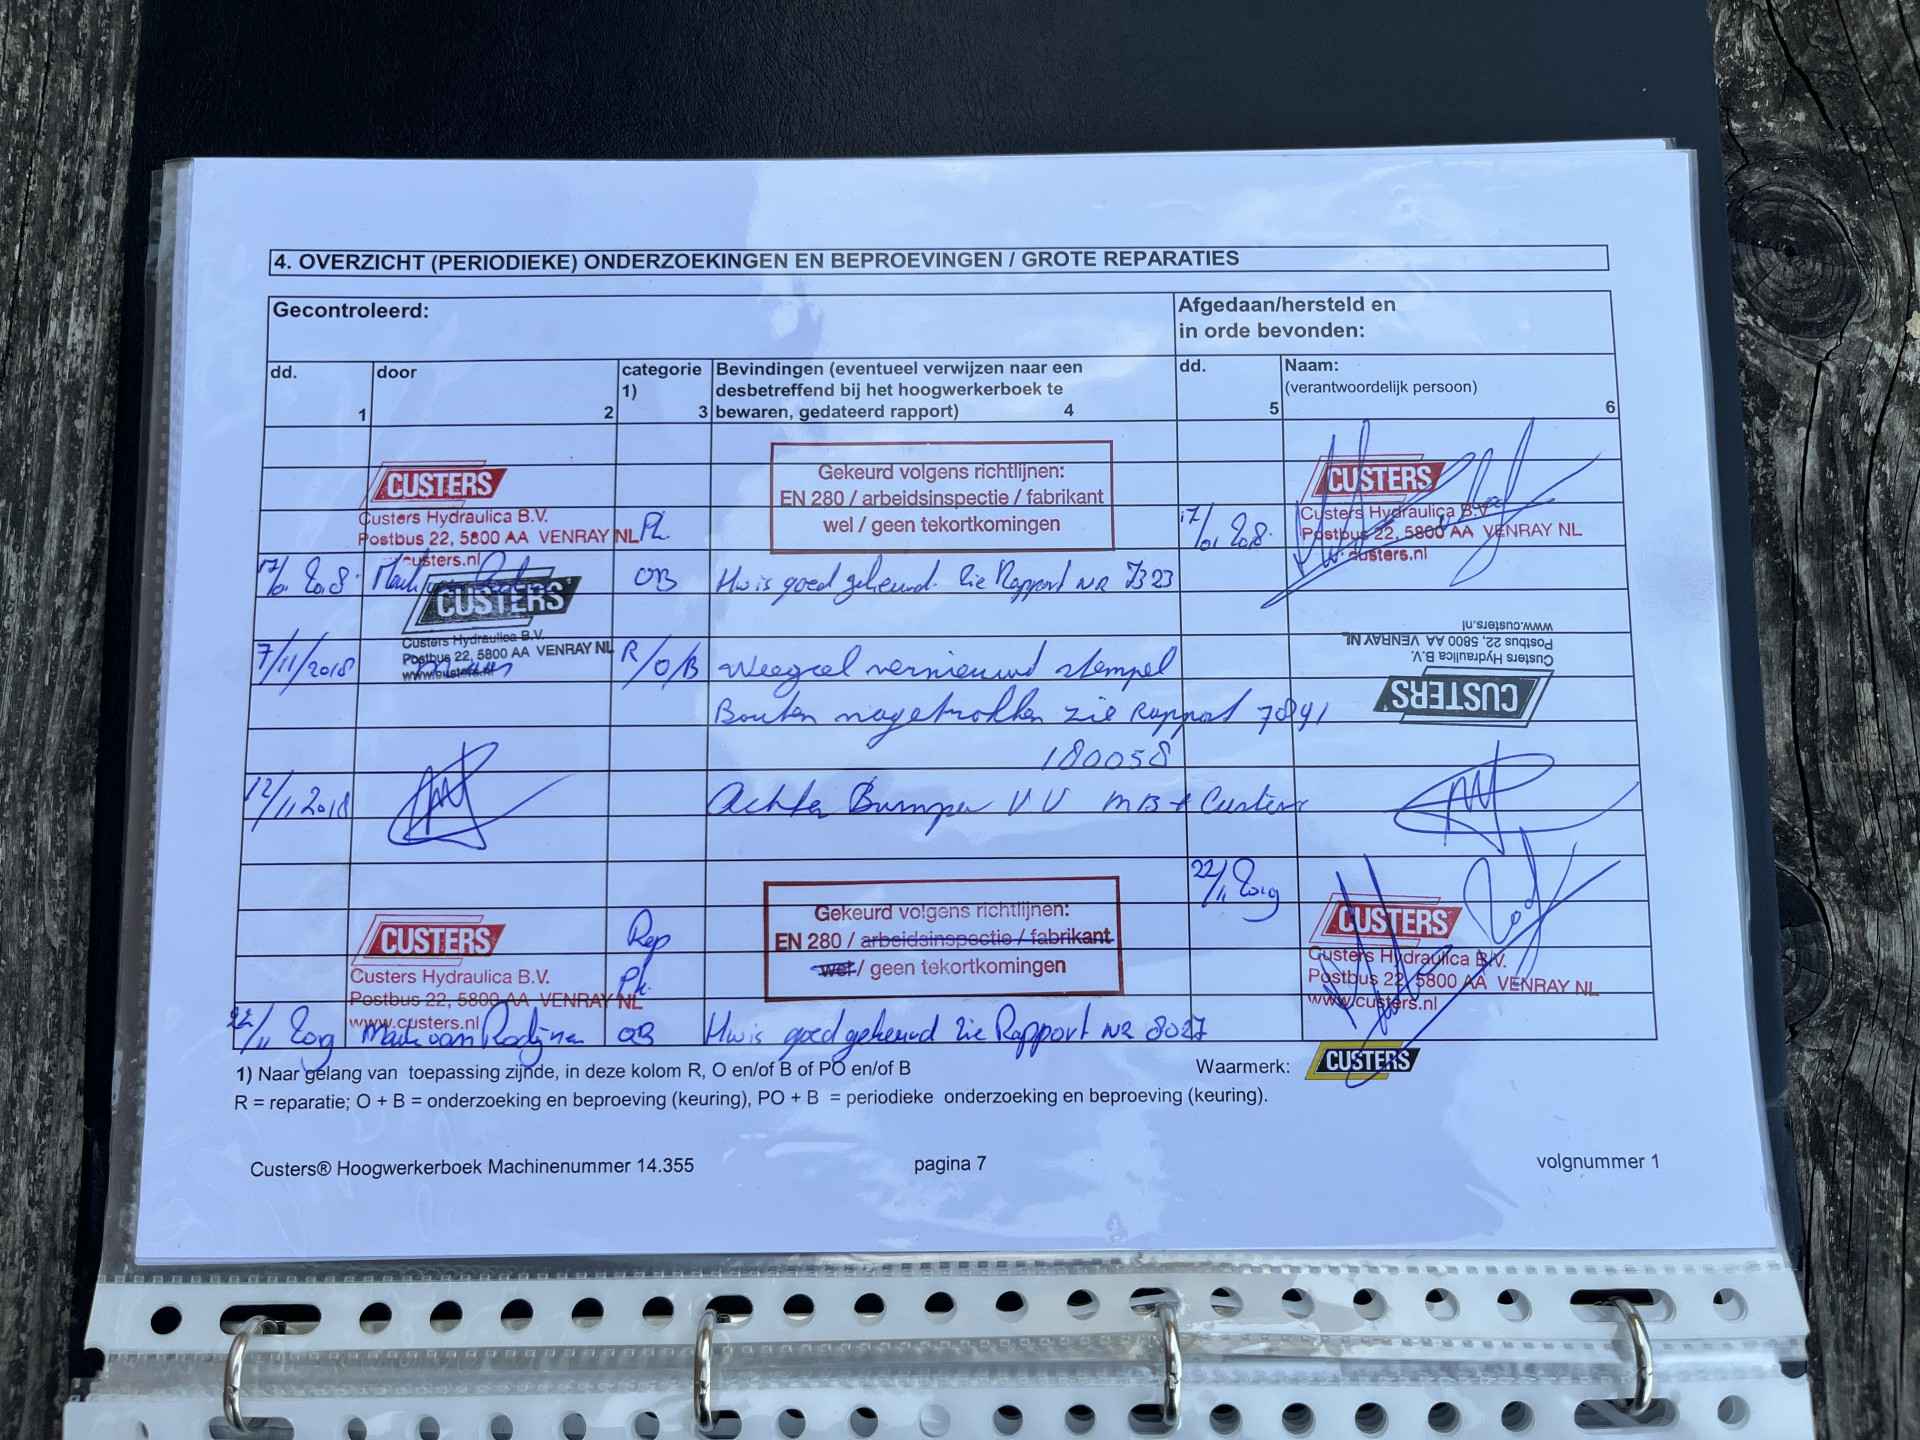 4. OVERZICHT (PERIODIEKE) ONDERZOEKINGEN EN BEPROEVINGEN / GROTE REPARATIES
Gecontroleerd:
Afgedaan/hersteld en
in orde bevonden:
dd.
1
door
2
categorie
1)
3
Bevindingen (eventueel verwijzen naar een
desbetreffend bij het hoogwerkerboek te
bewaren, gedateerd rapport)
4
dd.
5
Naam:
(verantwoordelijk persoon)
6
CUSTERS
Custers Hydraulica B.V.
Postbus 22, 5800 AA VENRAY NL
custers.nl
Gekeurd volgens richtlijnen:
EN 280 / arbeidsinspectie / fabrikant
wel / geen tekortkomingen
17/01 2018
CUSTERS
Custers Hydraulica B.V.
Postbus 22, 5800 AA VENRAY NL
custers.nl
17/01 2018
OB
Hw is goed gekeurd. Zie Rapport nr 7323
CUSTERS
Custers Hydraulica B.V.
Postbus 22, 5800 AA VENRAY NL
www.custers.nl
7/11/2018
R/O/B
Weegcel vernieuwd stempel
Bouten nagetrokken zie Rapport 7841
CUSTERS
Custers Hydraulica B.V.
Postbus 22, 5800 AA VENRAY NL
www.custers.nl
180058
12/11 2018
Achter Bumper V V MB + Custers
22/11 2019
CUSTERS
Custers Hydraulica B.V.
Postbus 22, 5800 AA VENRAY NL
www.custers.nl
Rep
Gekeurd volgens richtlijnen:
EN 280 / arbeidsinspectie / fabrikant
wel / geen tekortkomingen
CUSTERS
Custers Hydraulica B.V.
Postbus 22, 5800 AA VENRAY NL
www.custers.nl
22/11 2019
Mark van Rodijnen
OB
Hw is goed gekeurd Zie Rapport nr 8027
1) Naar gelang van toepassing zijnde, in deze kolom R, O en/of B of PO en/of B
Waarmerk:
CUSTERS
R = reparatie; O + B = onderzoeking en beproeving (keuring), PO + B = periodieke onderzoeking en beproeving (keuring).
Custers® Hoogwerkerboek Machinenummer 14.355
pagina 7
volgnummer 1